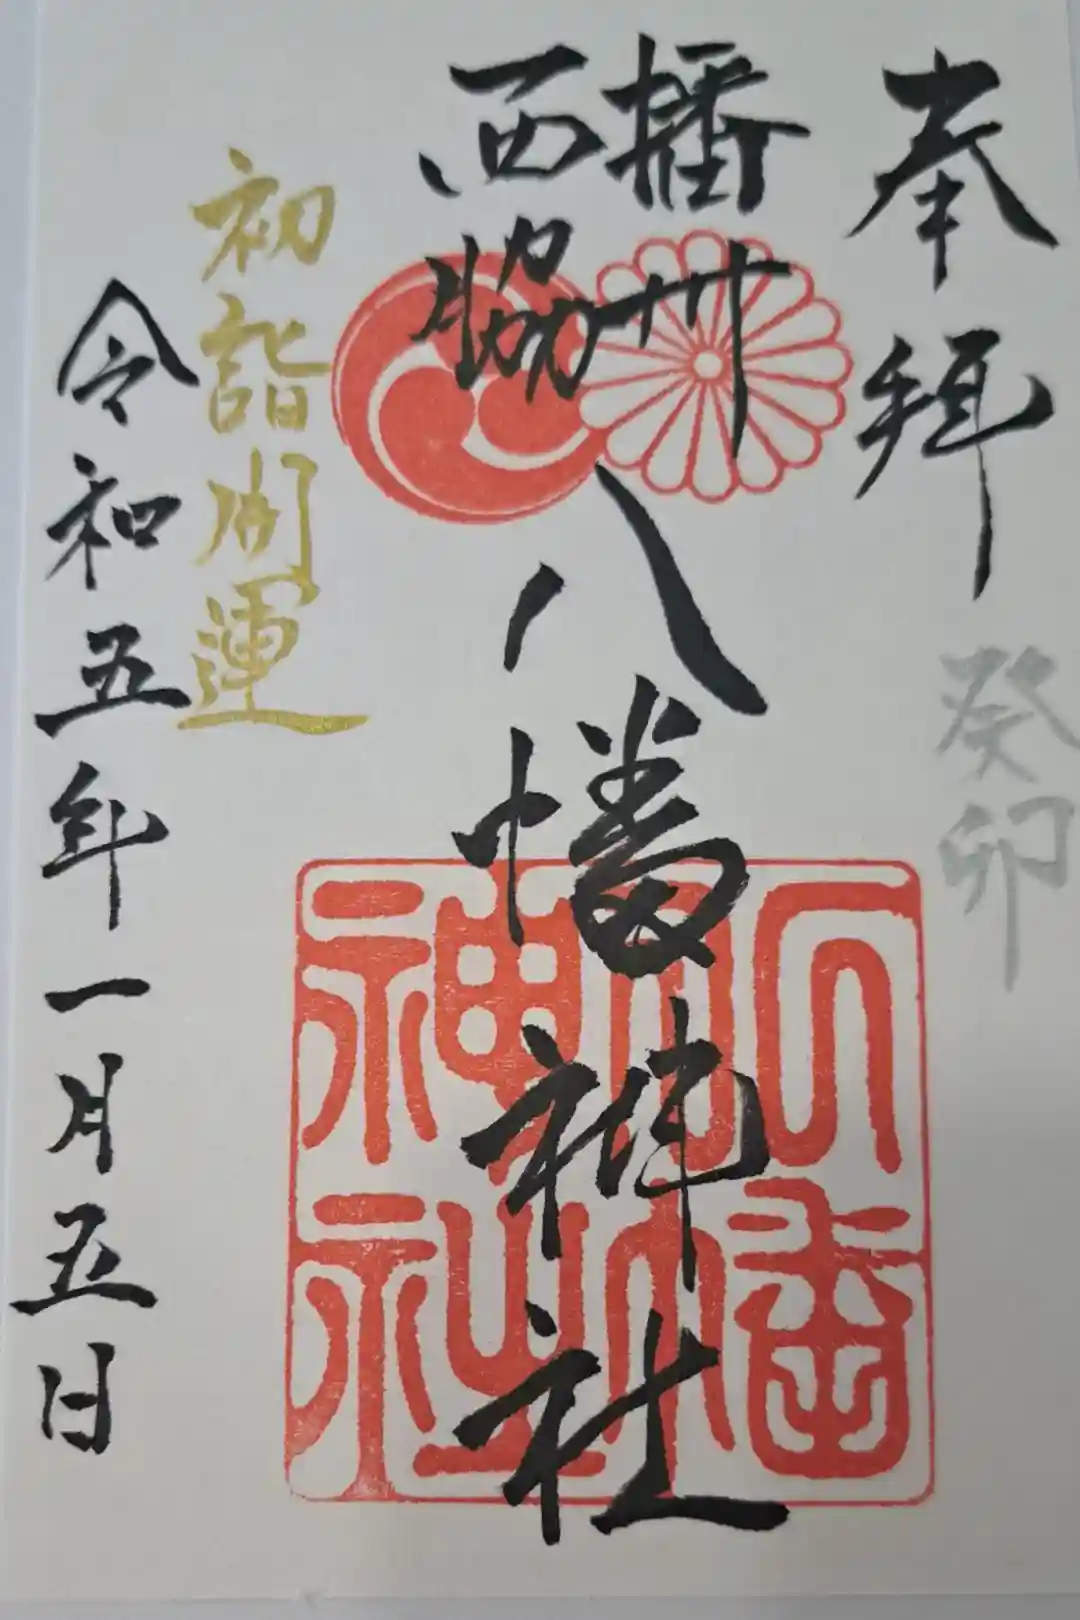 奉拝
癸卯
播州
西脇
八幡神社
八幡神社
初詣開運
令和五年一月五日